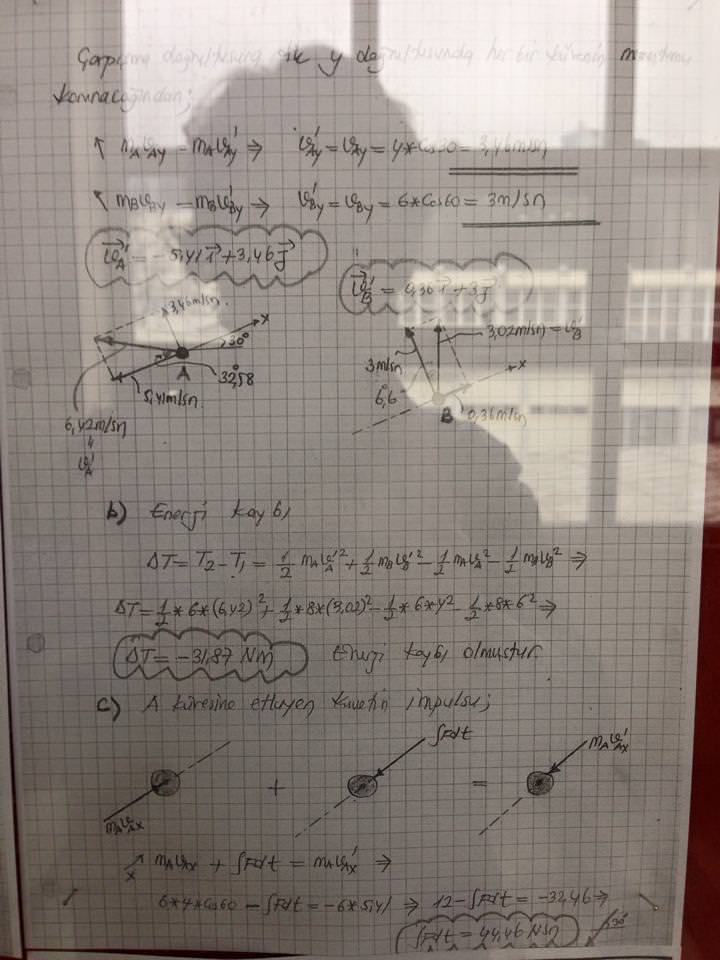 Çarpışma doğrultusuna dik y doğrultusunda her bir kürenin momentumu
korunacağından;
↖ mAϑAy = mAϑ'Ay ⇒ ϑ'Ay = ϑAy = 4*Cos30 = 3,46m/sn
↖ mBϑBy = mBϑ'By ⇒ ϑ'By = ϑBy = 6*Cos60 = 3m/sn
ϑ'A = -5,41 i + 3,46 j
ϑ'B = 0,36 i + 3 j
3,46m/sn
x
30°
A
32,58
5,41m/sn
6,42m/sn
"
ϑ'A
3,02m/sn = ϑ'B
3m/sn
x
6,6°
B
0,36m/sn
b) Energi kaybı
ΔT = T2 - T1 = 1/2 mAϑ'A² + 1/2 mBϑ'B² - 1/2 mAϑA² - 1/2 mBϑB² ⇒
ΔT = 1/2 * 6*(6,42)² + 1/2 * 8*(3,02)² - 1/2 * 6*4² - 1/2 * 8*6² ⇒
ΔT = -31,87 Nm Enerji kaybı olmuştur.
c) A küresine etkiyen kuvvetin impulsu;
mAϑAx
+
∫Fdt
=
mAϑ'Ax
↗x mAϑAx + ∫Fdt = mAϑ'Ax ⇒
6*4*Cos60 - ∫Fdt = -6*5,41 ⇒ 12 - ∫Fdt = -32,46 ⇒
∫Fdt = 44,46 Nsn
30°